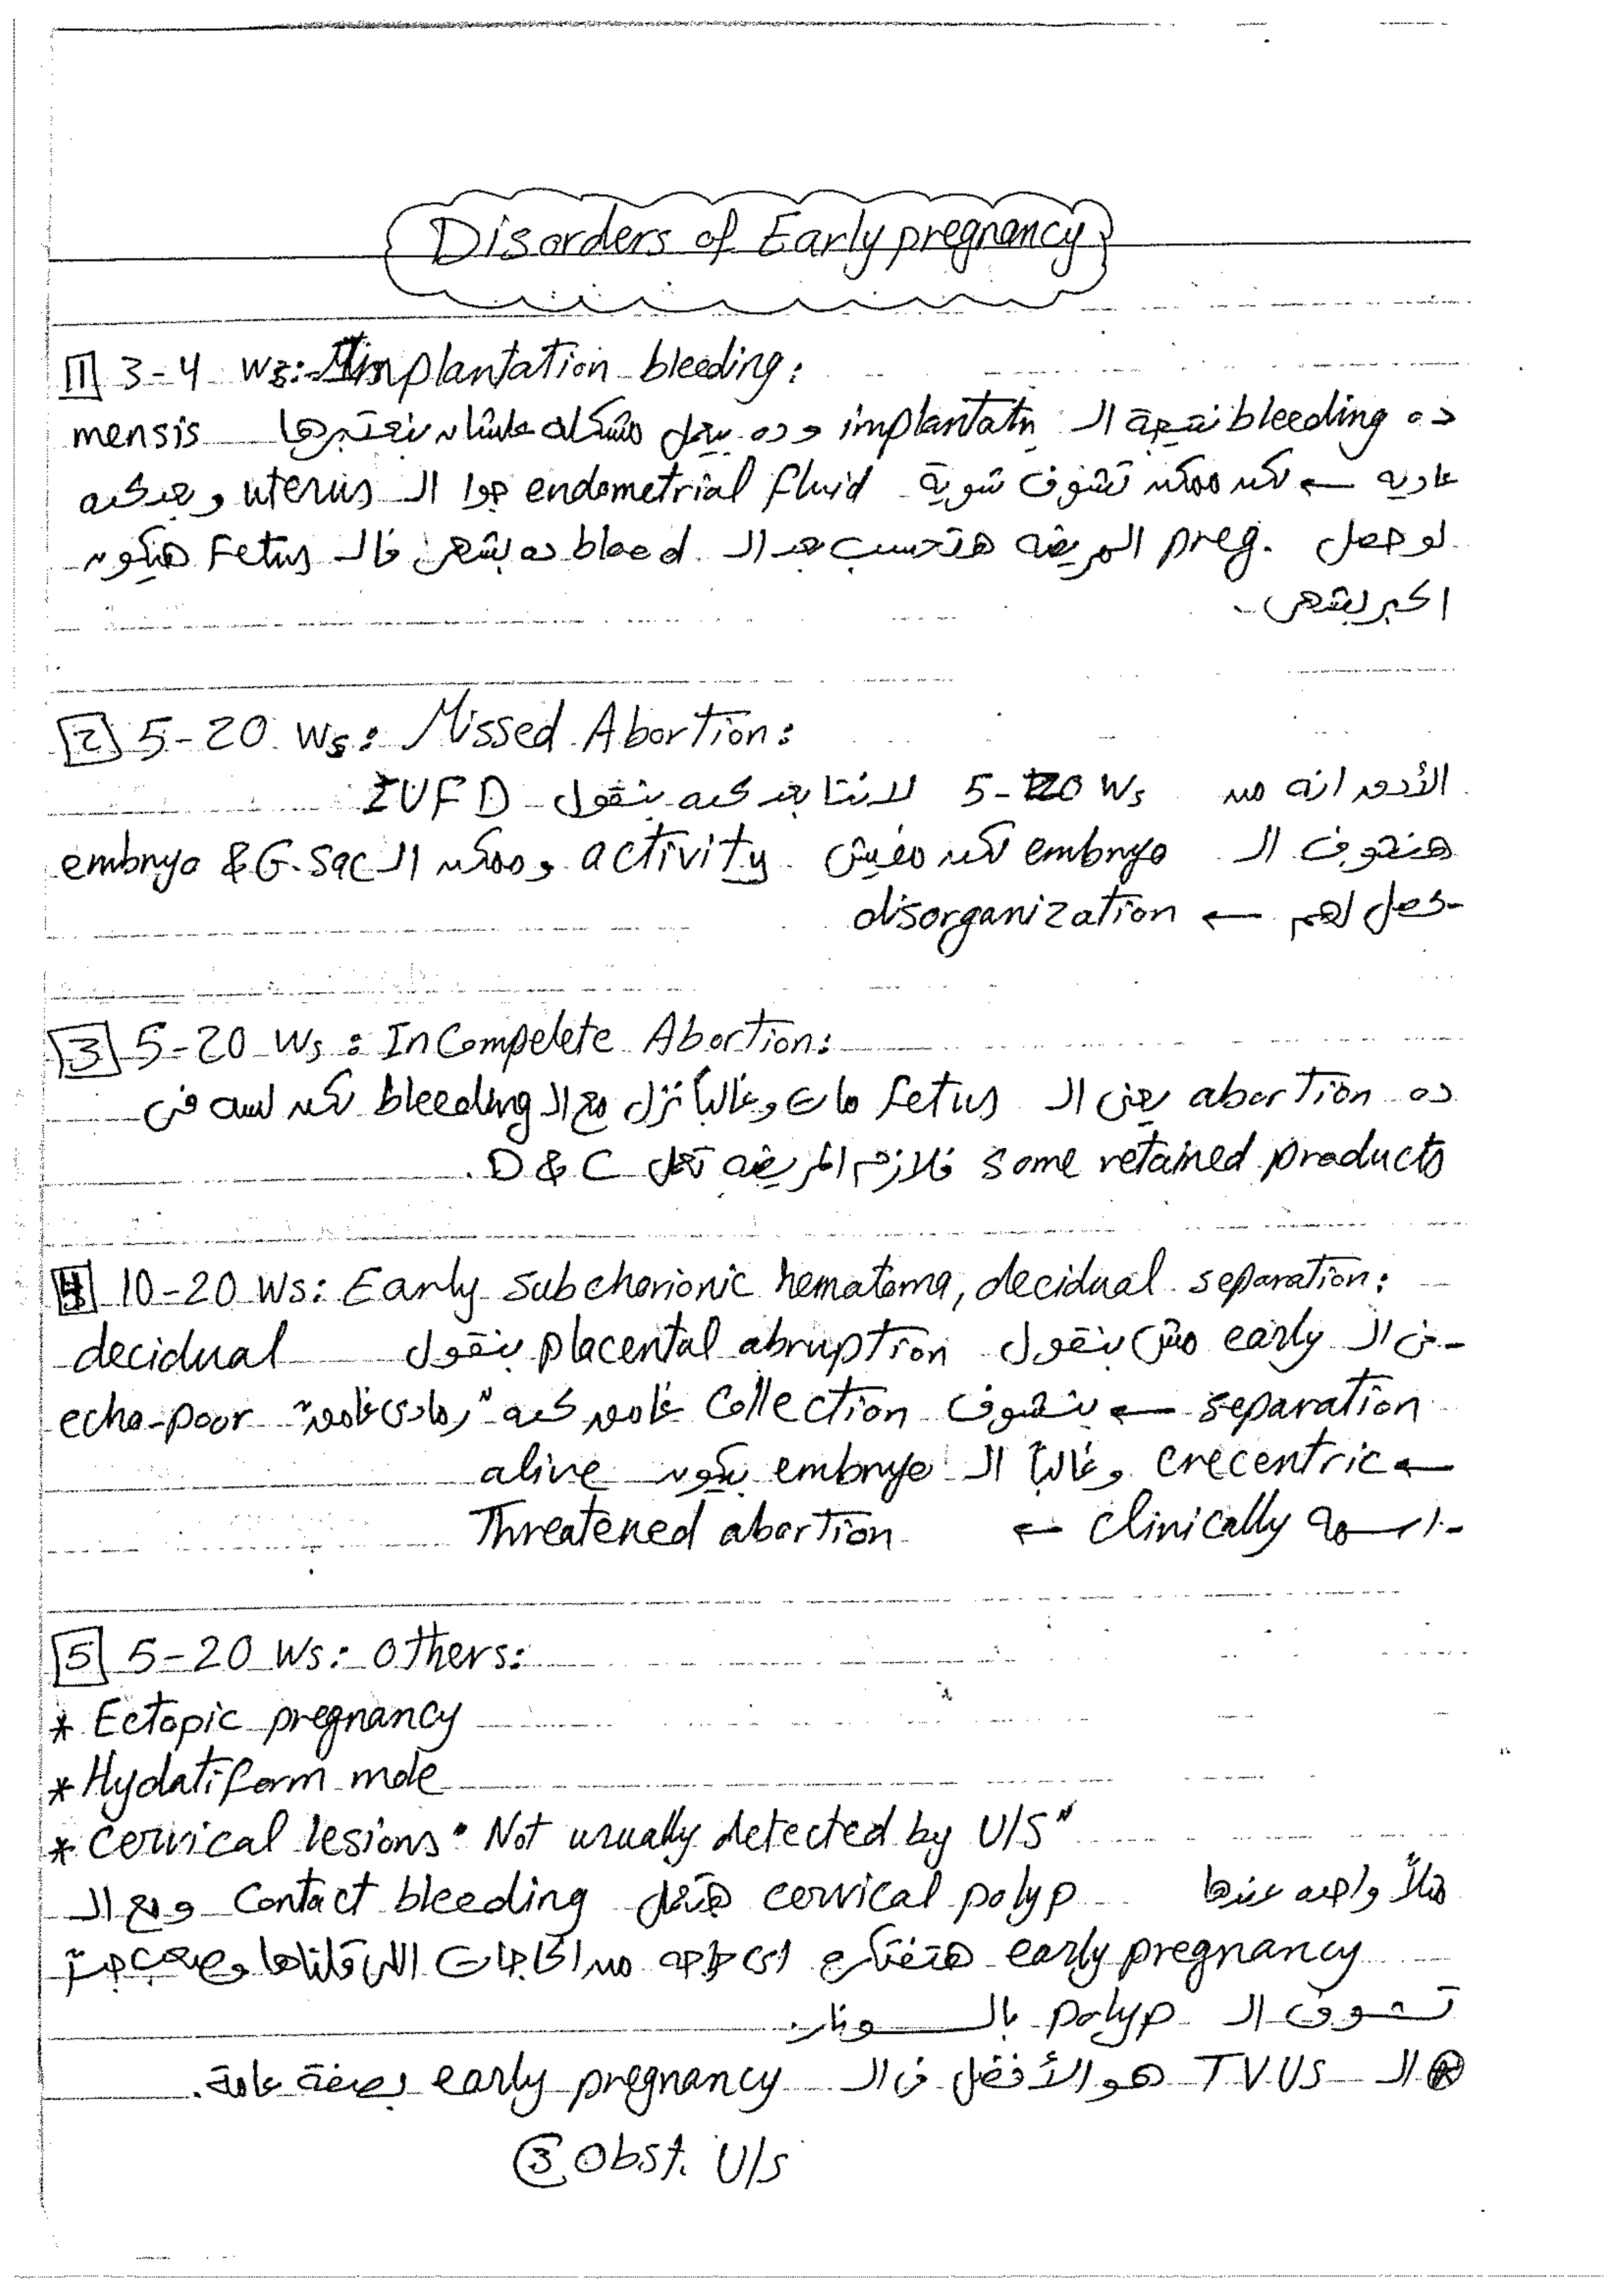 Disorders of Early pregnancy
1 3-4 Ws: Implantation bleeding:
ده bleeding نتيجة الـ implantatn وده بيعمل مشكله علشان بنعتبرها mensis
عاديه ← لكن ممكن تشوف شوية endometrial fluid جوا الـ uterus وبعد كده
لو حصل preg. المريضه هتحسب بعد الـ bleed ده بشهر فالـ Fetus هيكون
اكبر بشهر.
2 5-20 Ws: Missed Abortion:
الأدق انه من 5-20 Ws لاننا بعد كده بنقول IUFD
هنشوف الـ embryo لكن مفيش activity وممكن الـ embryo & G.sac
حصل لهم ← disorganization
3 5-20 Ws: InCompelete Abortion:
ده abortion يعنى الـ Fetus مات وغالباً نزل مع الـ bleeding لكن لسه فى
some retained products فلازم المريضه تعمل D & C.
4 10-20 Ws: Early subchorionic hematoma, decidual separation:
فى الـ early مش بنقول placental abruption بنقول decidual
separation ← بنشوف Collection غامق كده "رمادى غامق" echo-poor
← crecentric وغالباً الـ embryo بيكون alive
اسمه clinically ← Threatened abortion
5 5-20 Ws: Others:
* Ectopic pregnancy
* Hydatiform mole
* Cervical lesions "Not usually detected by U/S"
مثلاً واحده عندها cervical polyp هتعمل Contact bleeding ومع الـ
early pregnancy هتفتكرى اى حاجه من الحاجات اللى قلناها وصعب جداً
تشوف الـ polyp بالسونار.
* الـ TVUS هو الأفضل فى الـ early pregnancy بصفة عامة.
3 Obst. U/S